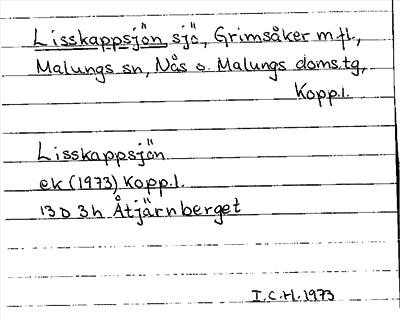 Lisskappsjön sjö, Grimsåker m.fl.,
Malungs sn, Nås o. Malungs doms.tg,
Kopp.l.
Lisskappsjön
ek (1973) Kopp.l.
13 D 3h Åtjärnberget
I.C.H. 1973